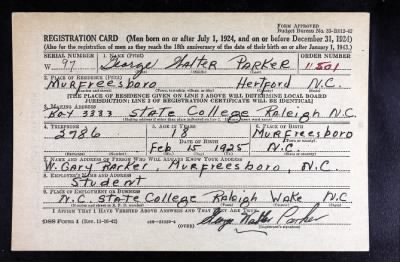 Form Approved
Budget Bureau No. 33-R012-42
REGISTRATION CARD (Men born on or after July 1, 1924, and on or before December 31, 1924)
(Also for the registration of men as they reach the 18th anniversary of the date of their birth on or after January 1, 1943.)
SERIAL NUMBER 1. NAME (Print) ORDER NUMBER
W 97 George Walter Parker 11501
2. PLACE OF RESIDENCE (Print)
Murfreesboro Hertford N.C.
(Town, township, village, or city) (County) (State)
[THE PLACE OF RESIDENCE GIVEN ON LINE 2 ABOVE WILL DETERMINE LOCAL BOARD
JURISDICTION; LINE 2 OF REGISTRATION CERTIFICATE WILL BE IDENTICAL]
3. MAILING ADDRESS
Box 3333 State College Raleigh N.C.
4. TELEPHONE 5. AGE IN YEARS 6. PLACE OF BIRTH
3786 18 Murfreesboro
DATE OF BIRTH
Feb 15 1925 N.C.
7. NAME AND ADDRESS OF PERSON WHO WILL ALWAYS KNOW YOUR ADDRESS
W. Gary Parker, Murfreesboro, N.C.
8. EMPLOYER'S NAME AND ADDRESS
Student
9. PLACE OF EMPLOYMENT OR BUSINESS
N.C. State College Raleigh Wake N.C
I AFFIRM THAT I HAVE VERIFIED ABOVE ANSWERS AND THAT THEY ARE TRUE.
George Walter Parker
DSS Form 1 (Rev. 11-16-42) (OVER) (Registrant's signature)